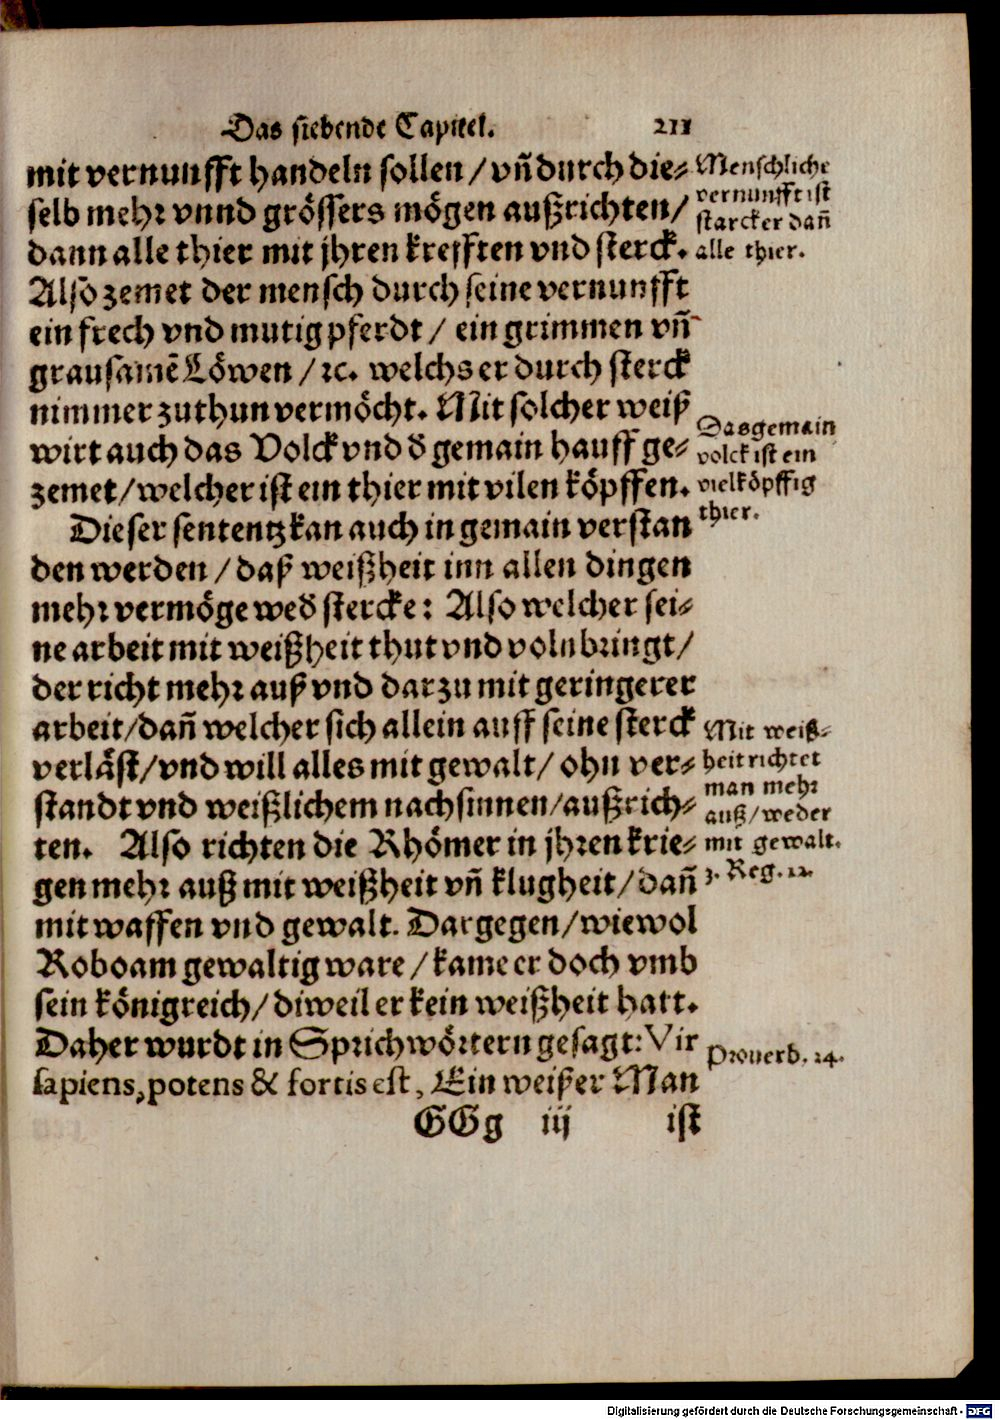 Das siebende Capitel. 211
mit vernunfft handeln sollen / vñ durch die⸗
selb mehr vnnd grössers mögen außrichten /
dann alle thier mit jhren krefften vnd sterck.
Also zemet der mensch durch seine vernunfft
ein frech vnd mutig pferdt / ein grimmen vñ
grausamẽ Löwen / ꝛc. welchs er durch sterck
nimmer zuthun vermöcht. Mit solcher weiß
wirt auch das Volck vnd d̕ gemain hauff ge⸗
zemet / welcher ist ein thier mit vilen köpffen.
Dieser sententz kan auch in gemain verstan
den werden / daß weißheit inn allen dingen
mehr vermöge wed̕ stercke: Also welcher sei⸗
ne arbeit mit weißheit thut vnd volnbringt /
der richt mehr auß vnd darzu mit geringerer
arbeit / dañ welcher sich allein auff seine sterck
verläst / vnd will alles mit gewalt / ohn ver⸗
standt vnd weißlichem nachsinnen / außrich⸗
ten. Also richten die Rhömer in jhren krie⸗
gen mehr auß mit weißheit vñ klugheit / dañ
mit waffen vnd gewalt. Dargegen / wiewol
Roboam gewaltig ware / kame er doch vmb
sein königreich / diweil er kein weißheit hatt.
Daher wurdt in Sprichwörtern gesagt: Vir
sapiens, potens & fortis est, Ein weißer Man
GGg iij ist
Menschliche
vernunfft ist
starcker dañ
alle thier.
Das gemain
volck ist ein
vielköpffig
thier.
Mit weiß⸗
heit richtet
man mehr
auß / weder
mit gewalt.
3. Reg. 12.
Prouerb. 24.
Digitalisierung gefördert durch die Deutsche Forschungsgemeinschaft - DFG